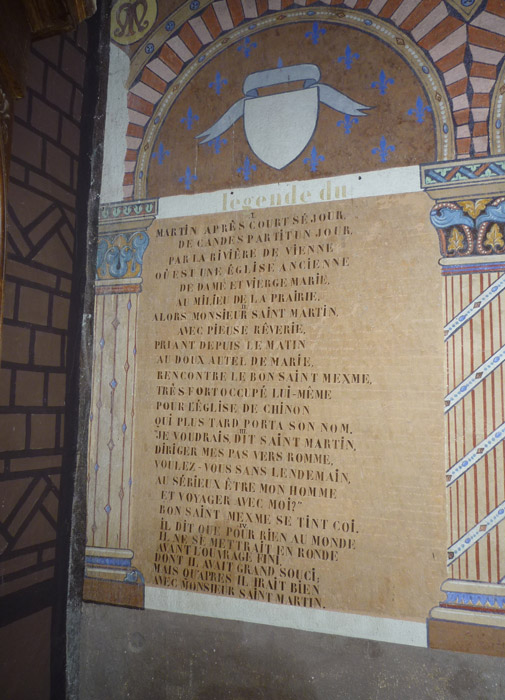 légende du
I.
MARTIN APRÈS COURT SÉJOUR,
DE CANDES PARTIT UN JOUR,
PAR LA RIVIÈRE DE VIENNE
OÙ EST UNE ÉGLISE ANCIENNE
DE DAME ET VIERGE MARIE,
AU MILIEU DE LA PRAIRIE.
II
ALORS MONSIEUR SAINT MARTIN,
AVEC PIEUSE RÊVERIE,
PRIANT DEPUIS LE MATIN
AU DOUX AUTEL DE MARIE,
RENCONTRE LE BON SAINT MEXME,
TRÈS FORT OCCUPÉ LUI-MÊME
POUR L'ÉGLISE DE CHINON
QUI PLUS TARD PORTA SON NOM.
III
"JE VOUDRAIS DIT SAINT MARTIN,
DIRIGER MES PAS VERS ROMME,
VOULEZ-VOUS SANS LENDEMAIN,
AU SÉRIEUX ÊTRE MON HOMME
ET VOYAGER AVEC MOI?"
BON SAINT MEXME SE TINT COI,
IV
IL DIT QUE POUR RIEN AU MONDE
IL NE SE METTRAIT EN RONDE
AVANT L'OUVRAGE FINI
DONT IL AVAIT GRAND SOUCI;
MAIS QU'APRÈS IL IRAIT BIEN
AVEC MONSIEUR SAINT MARTIN.